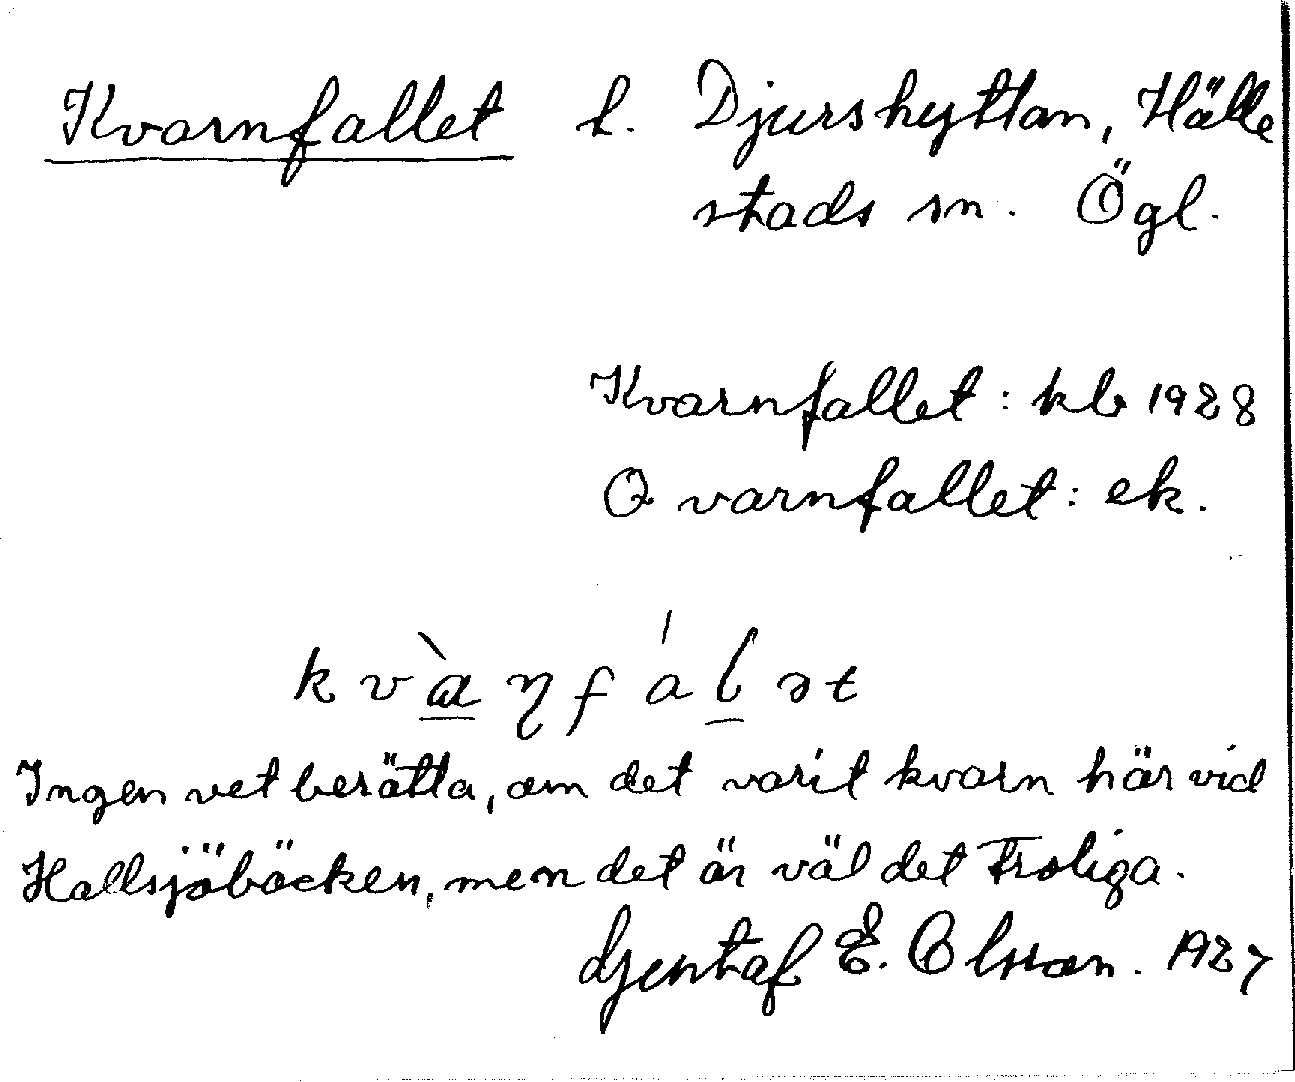 Kvarnfallet h. Djurshyttan, Hälle
stads sn. Ögl.
Kvarnfallet : kb 1928
Qvarnfallet : ek.
kvàɳfálət
Ingen vet berätta, om det varit kvarn här vid
Hallsjöbäcken, men det är väl det troliga.
Gustaf E. Olsson. 1927